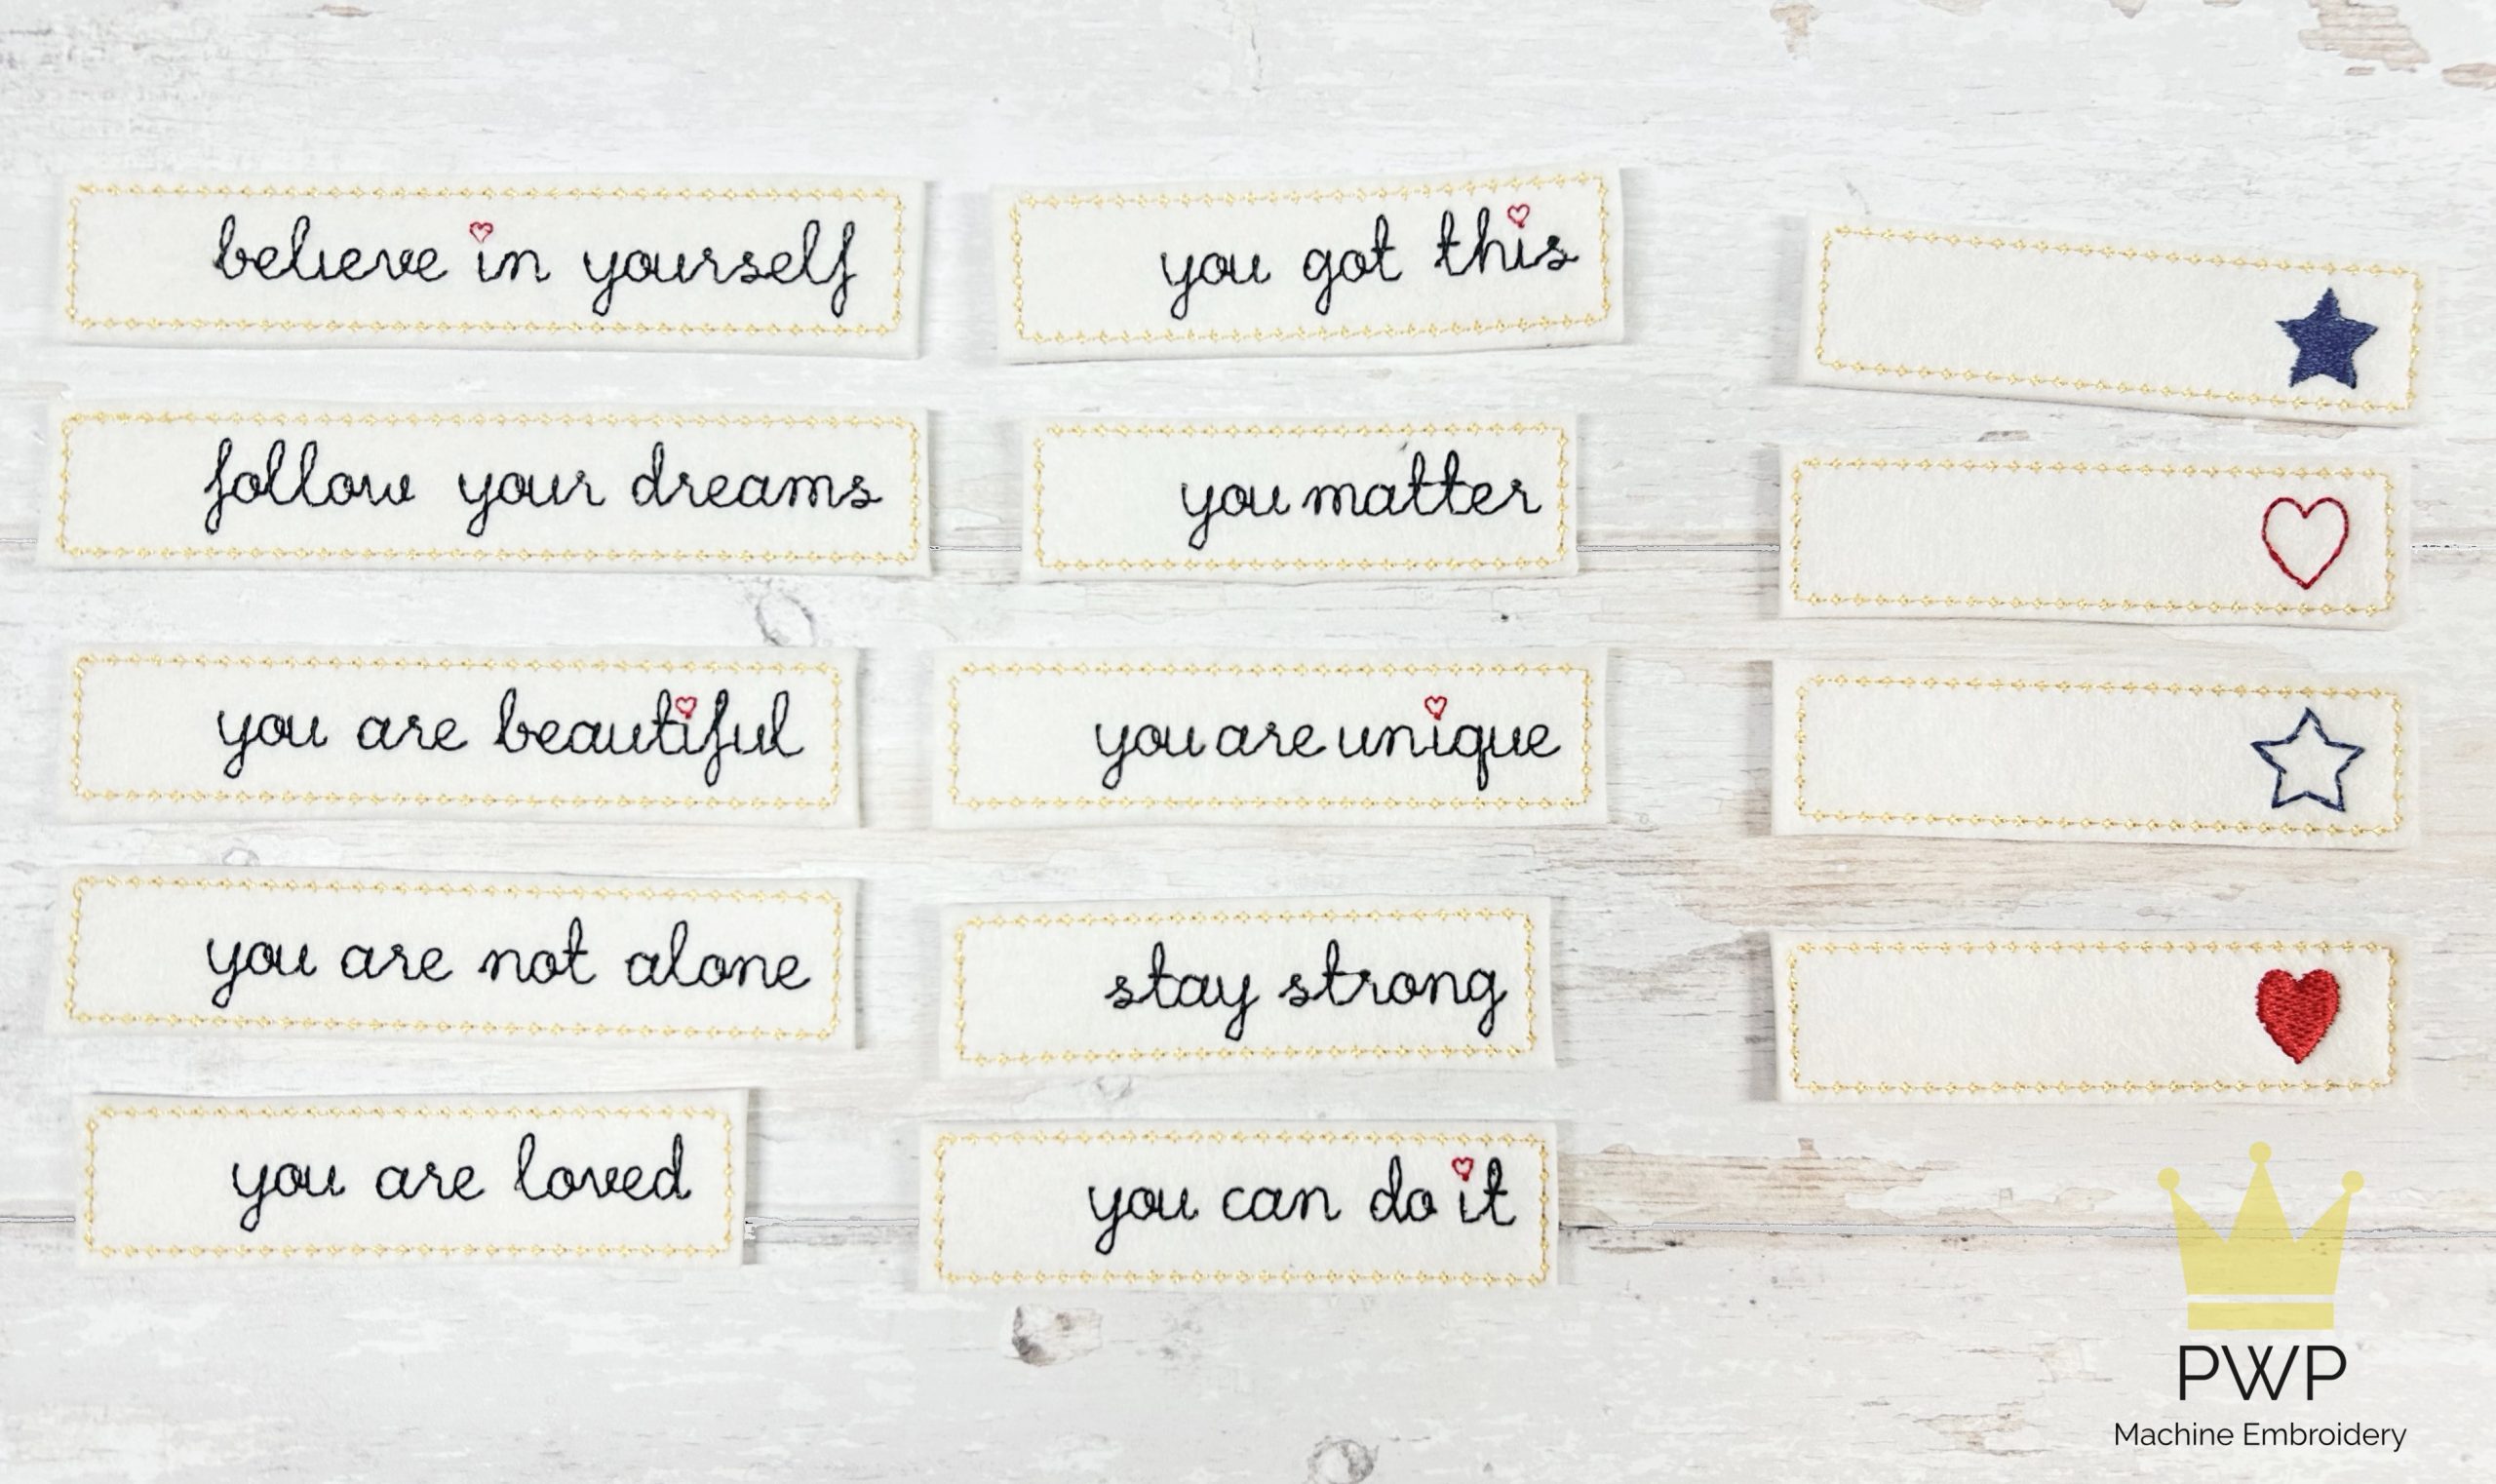 believe in yourself
you got this
follow your dreams
you matter
you are beautiful
you are unique
you are not alone
stay strong
you are loved
you can do it
PWP
Machine Embroidery